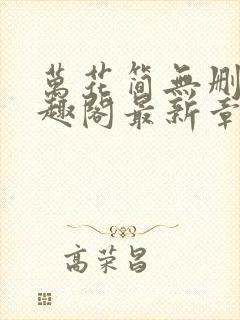 萬花简無删
趣阁最新章
高荣昌